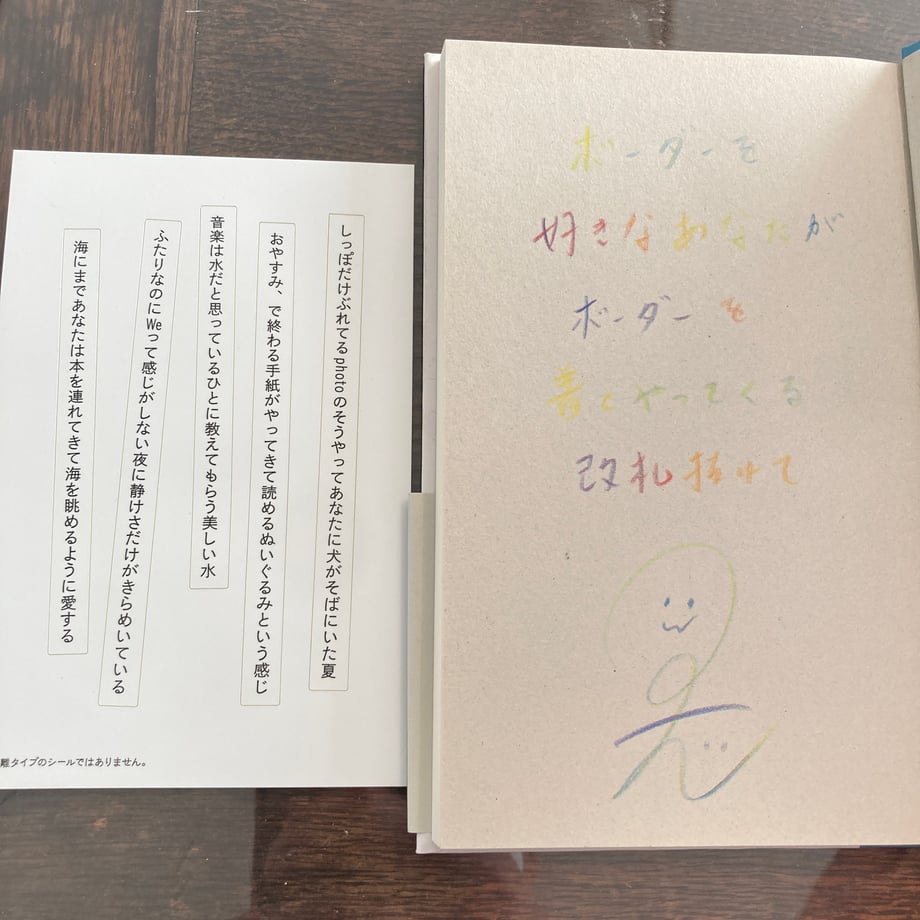 しっぽだけぶれてるphotoのそうやってあなたに犬がそばにいた夏
おやすみ、で終わる手紙がやってきて読めるぬいぐるみという感じ
音楽は水だと思っているひとに教えてもらう美しい水
ふたりなのにWeって感じがしない夜に静けさだけがきらめいている
海にまであなたは本を連れてきて海を眺めるように愛する
離タイプのシールではありません。
ボーダーを
好きなあなたが
ボーダーを
着てやってくる
改札抜けて